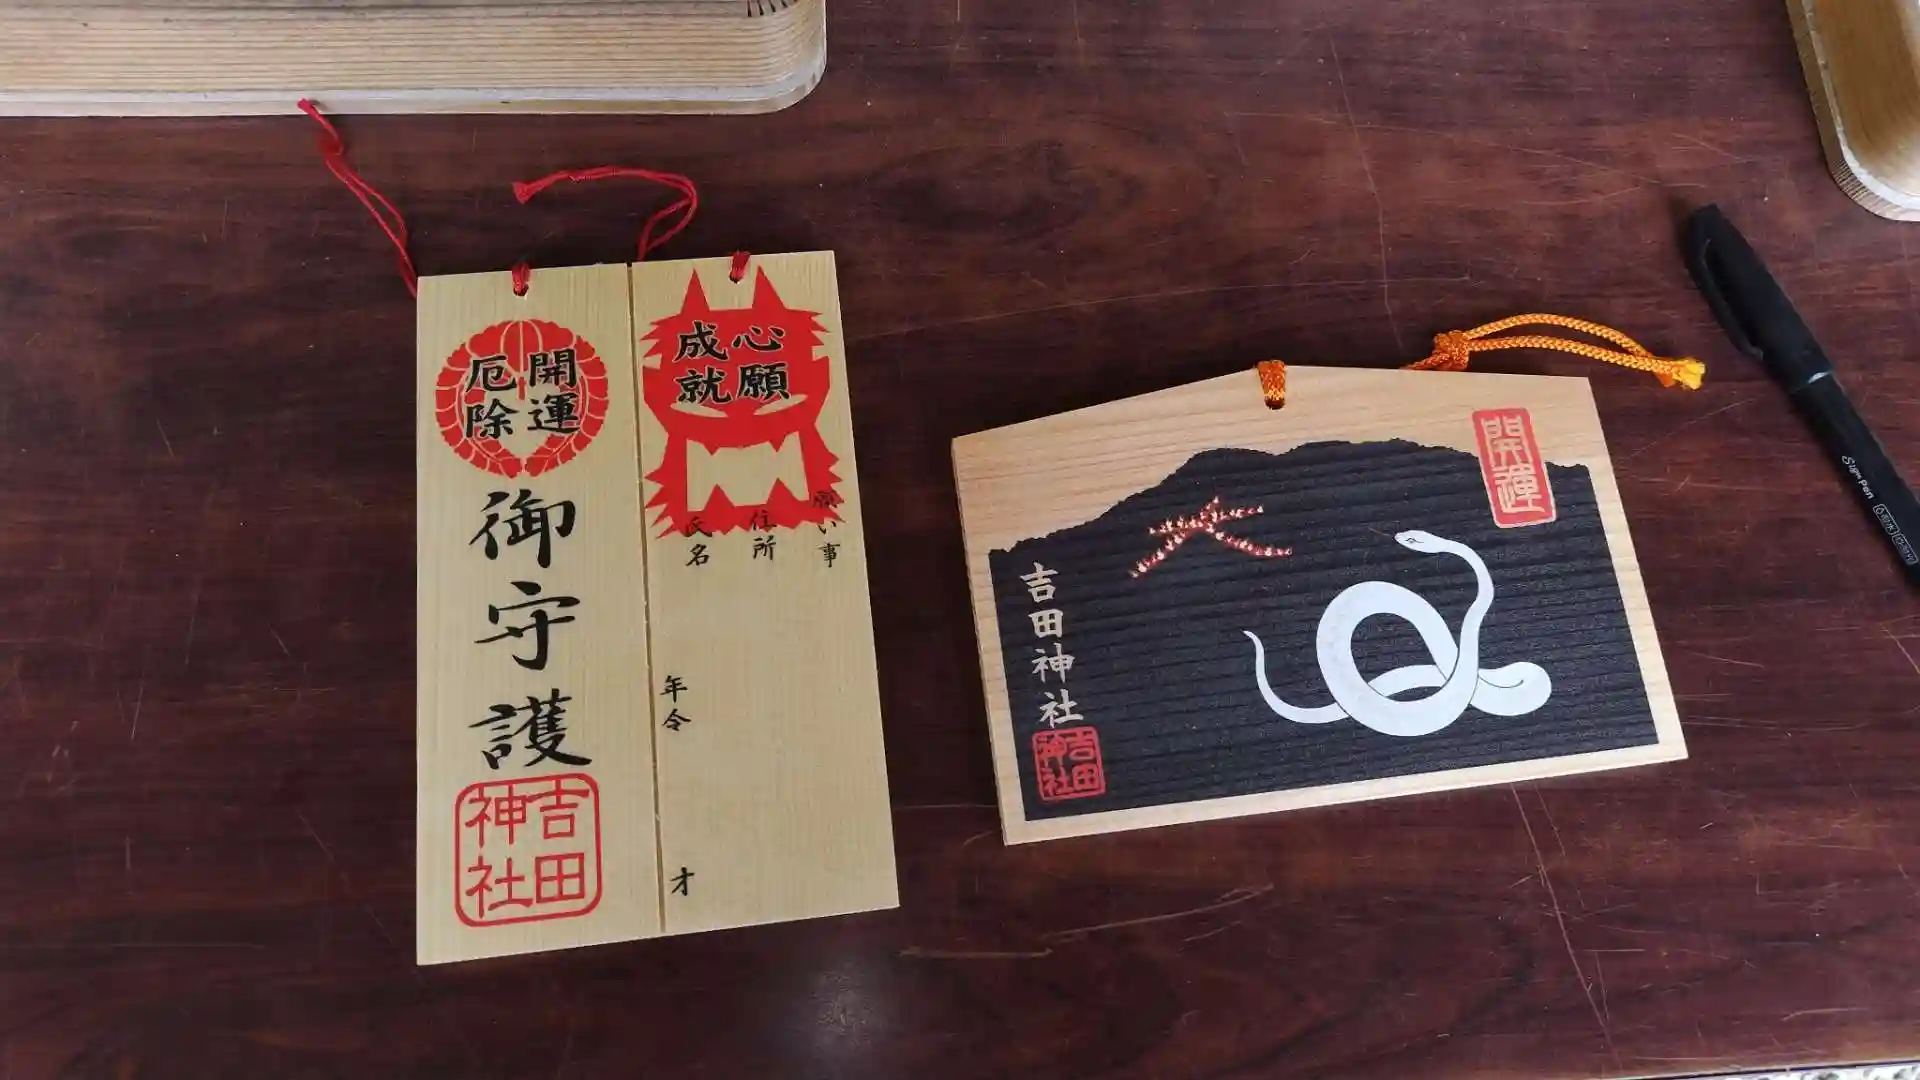 開運
厄除
御守護
吉田
神社
心願
成就
願い事
住所
氏名
年令
才
開運
大
吉田神社
吉田
神社
Sign Pen